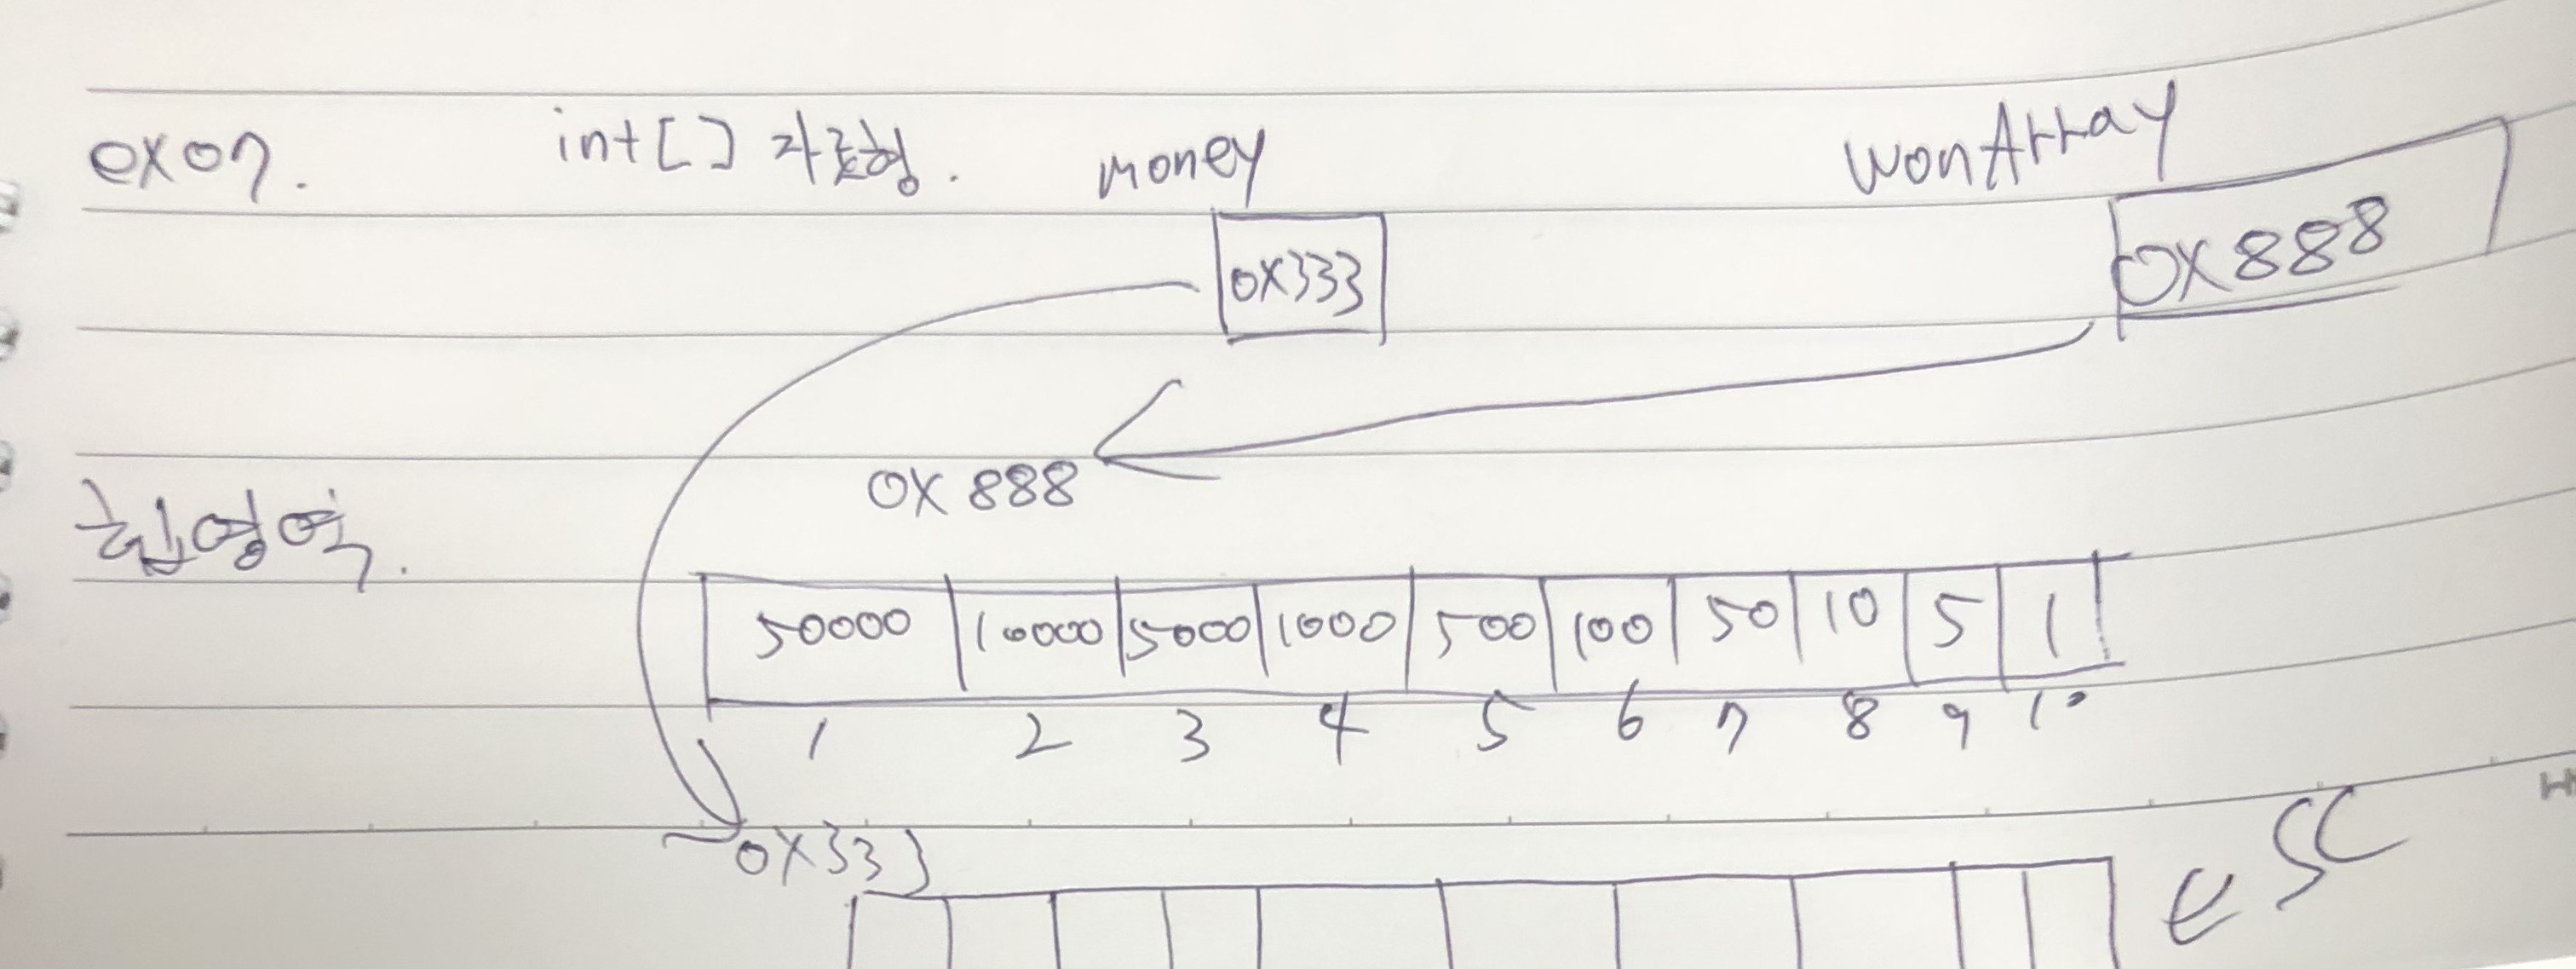 ex07. int[] 자료형. money wonArray
0x333 0x888
0x888
힙영역.
50000 10000 5000 1000 500 100 50 10 5 1
1 2 3 4 5 6 7 8 9 10
0x333
esc